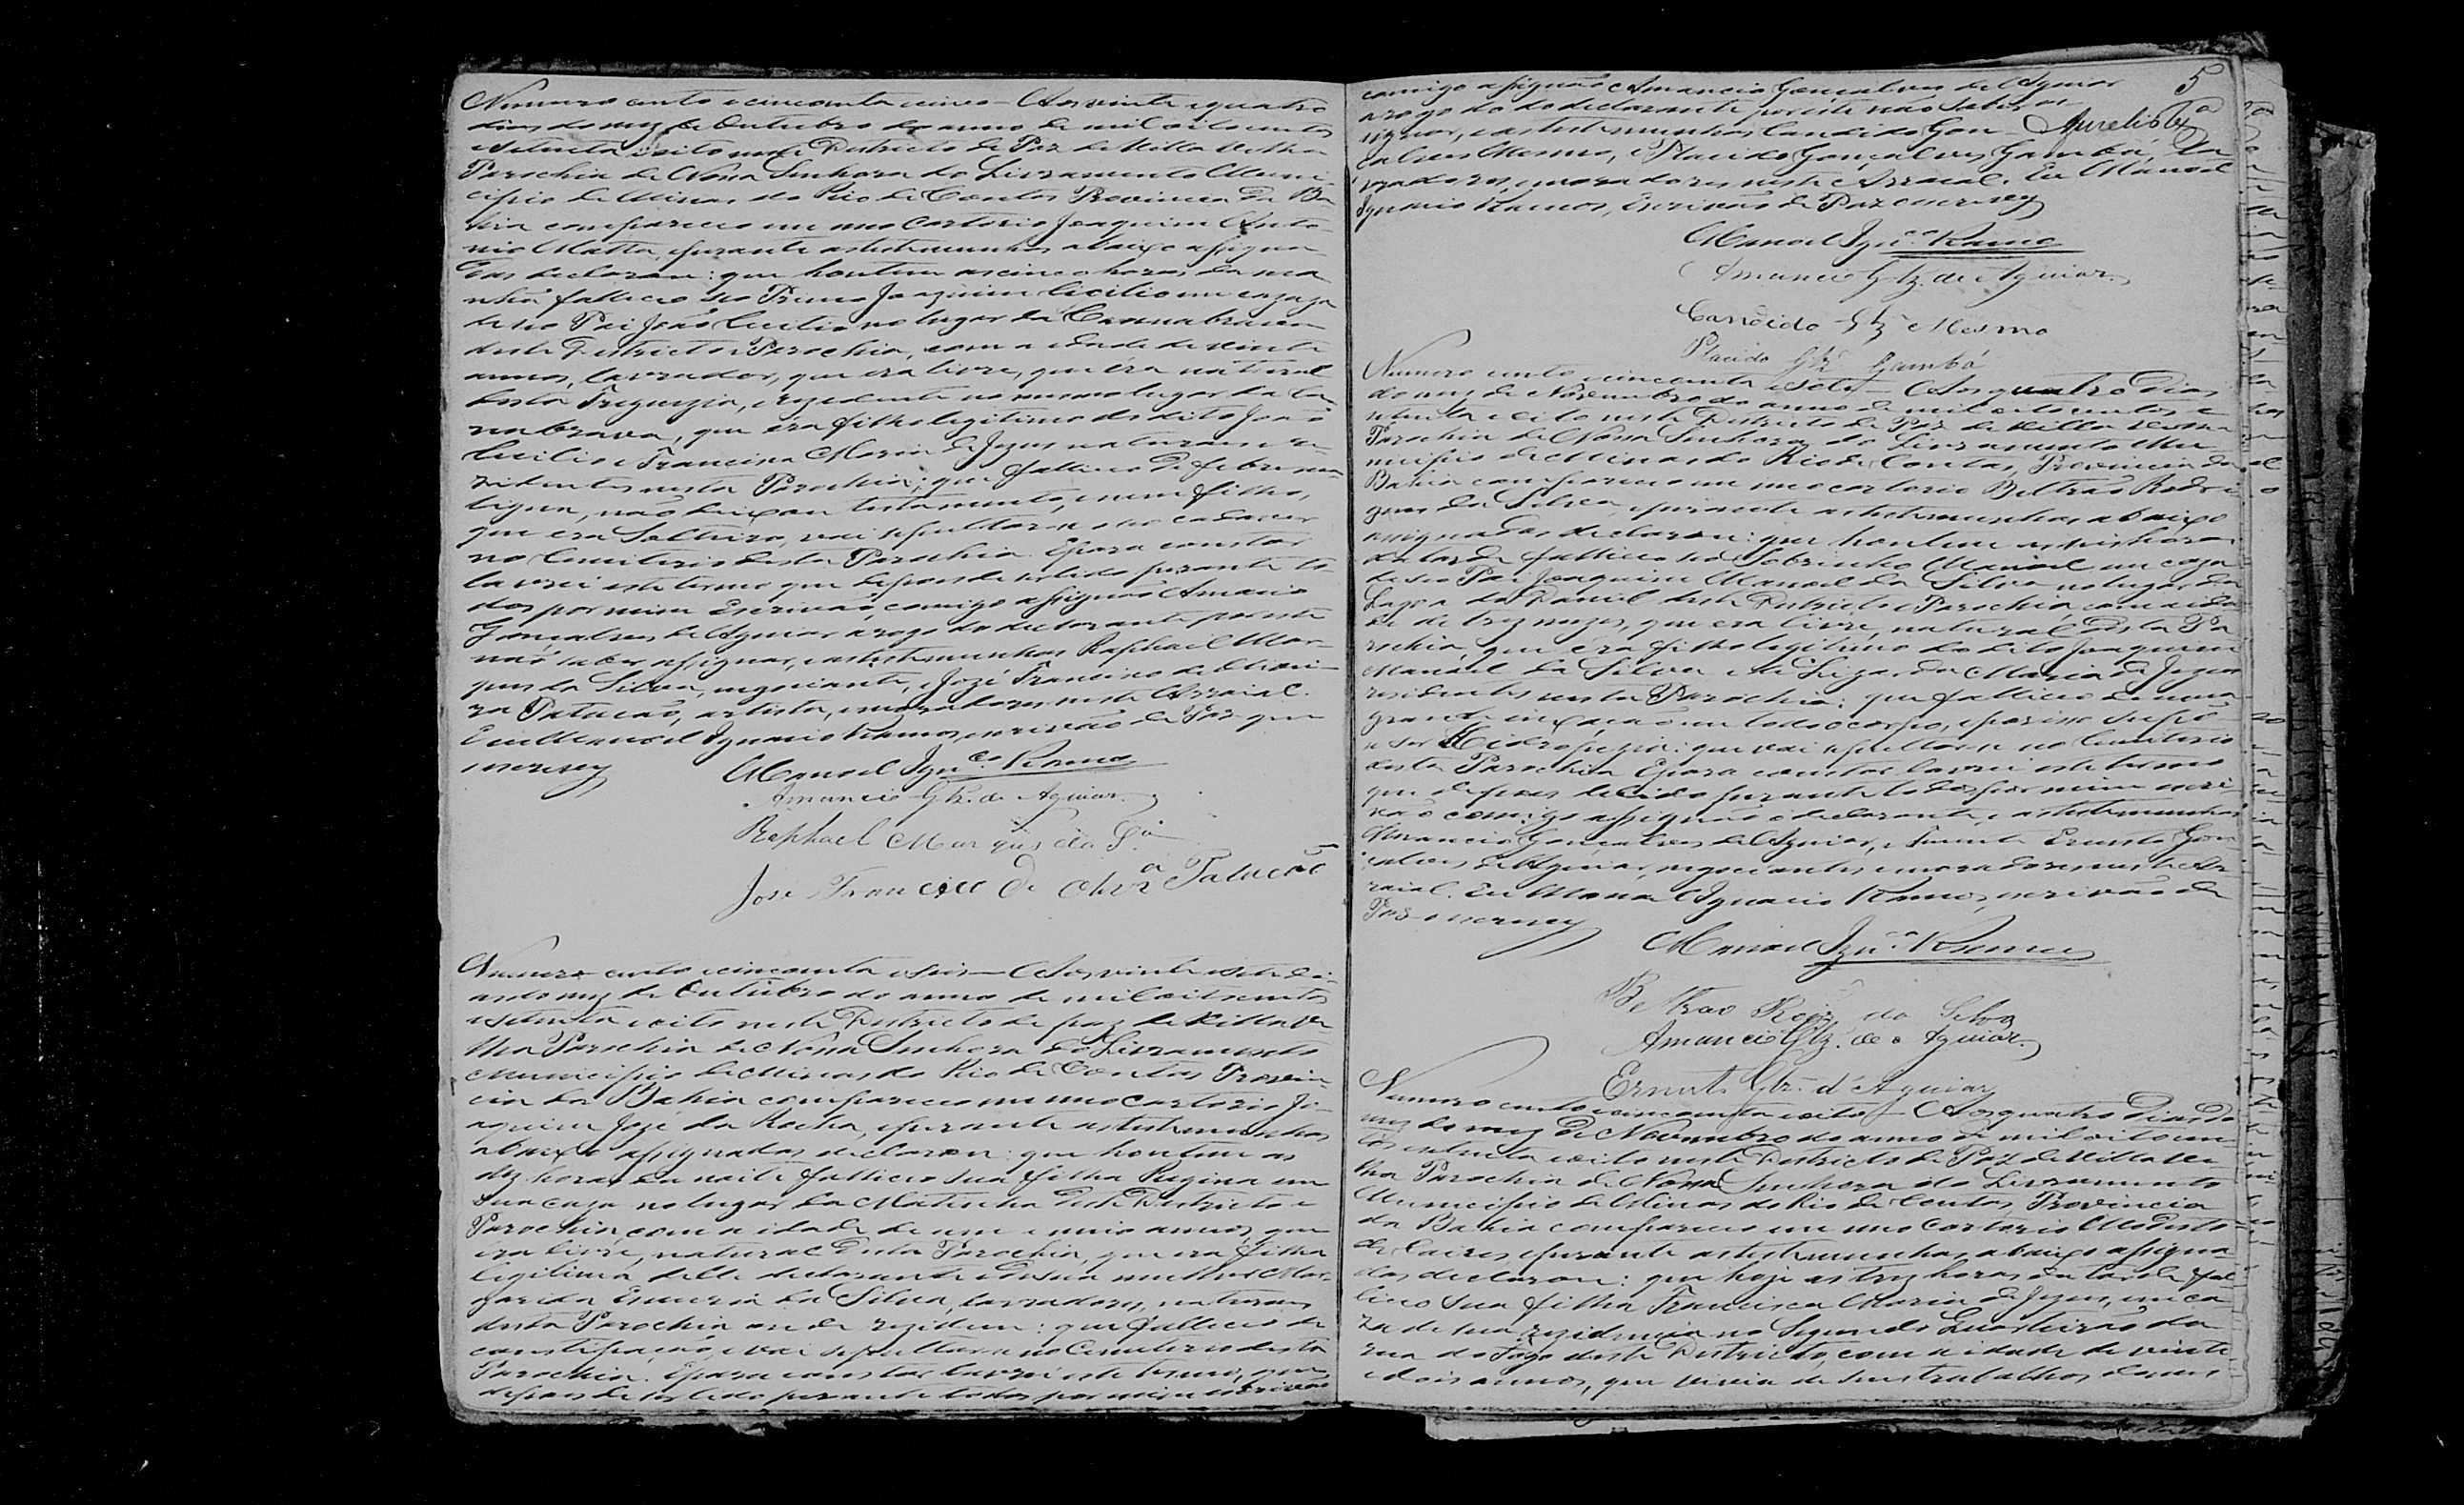 Numero cento e cincoenta e cinco - Aos vinte e quatro
dias do mez de Outubro do anno de mil oito centos
e setenta e oito neste Districto de Paz de Villa Velha
Parochia de Nossa Senhora do Livramento Muni-
cipio de Minas do Rio de Contas Provincia da Ba
hia compareceo em meo Cartorio Joaquim Anto-
nio Matta, e perante as testemunhas abaixo assigna-
das declarou: que hontem as cinco horas da ma
nhã falleceo seo Primo Joaquim Cicilio em caza
de seo Pai João Cecilio no lugar da Cannabrava
deste Districto e Parochia, com a idade de vinte
annos, lavrador, que era livre, que éra natural
desta Freguezia, e rezidente no mesmo lugar da Can
nabrava, que éra filho legitimo do dito João
Cecilio e Francisca Maria de Jezus naturaes e re-
zidentes nesta Parochia; que falleceo de febre ma
ligna, não deixou testamento, e nem filhos,
que era Solteiro, vai sepultar-se seo cadaver
no Cemiterio desta Parochia. E para constar
lavrei este termo que depois de ser lido perante to-
dos por mim Escrivão, comigo assignão Amancio
Gonçalves de Aguiar a rogo do declarante por este
não saber assignar, e as testemunhas Raphael Mar-
ques da Silva, negociante, e Jozé Francisco de Olivei-
ra Patacão, artista, e moradores neste Arraial.
Eu Manoel Ignacio Ramos, escrivão de Paz que
escrevy
Manoel Ign.co Ramos
Amancio Glz. de Aguiar
Raphael Marques da S.a
Jose Francisco de Olivr.a Patacão
Numero cento e cincoenta e seis - Aos vinte e sete di-
as do mez de Outubro do anno de mil oitocentos
e setenta e oito neste Districto de paz de Villa Ve-
lha Parochia de Nossa Senhora do Livramento
Municipio de Minas do Rio de Contas Provin-
cia da Bahia compareceo em meo cartorio Jo-
aquim Jozé da Rocha, e perante as testemunhas
abaixo assignadas declarou: que hontem as
dez horas da noite falleceo sua filha Regina em
sua caza no lugar da deste Districto e
Parochia, com a idade de um e meio annos, que
era livre, natural desta Parochia, que era filha
legitima delle declarante e de sua mulher Mar-
garida da Silva, lavradores, naturaes
desta Parochia onde rezidem: que falleceo de
constipação, e vai sepultar-se no Cemiterio desta
Parochia. E para constar lavrei este termo, que
depois de ser lido perante todos por mim escrivão
5
comigo assignão Amancio Gonçalves de Aguiar
a rogo do declarante por este não saber as-
signar, e as testemunhas Candido Gon-
çalves Mesmo, e Placido Gonçalves Gambá, la
vradores, e moradores neste Arraial. Eu Manoel
Ignacio Ramos, Escrivão de Paz escrevy
Manoel Ign.co Ramos
Amancio Glz. de Aguiar
Candido Glz Mesmo
Placido Glz Gambá
Numero cento e cincoenta e sete - Aos quatro dias
do mez de Novembro do anno de mil oito centos e
setenta e oito neste Districto de Paz de Villa Velha
Parochia de Nossa Senhora do Livramento Mu-
nicipio de Minas do Rio de Contas, Provincia da
Bahia compareceo em meo cartorio Beltrão Rodri
gues da Silva, e perante as testemunhas abaixo
assignadas declarou: que hontem as seis horas
da tarde falleceo seo Sobrinho Manoel em caza
de seo Pai Joaquim Manoel da Silva no lugar da
Lagoa do Daniel deste Districto e Parochia, com a ida
de de trez mezes, que era livre, natural desta Pa
rochia, que éra filho legitimo do dito Joaquim
Manoel da Silva e Maria de Jezus
residentes nesta Parochia: que falleceo de uma
grande inxação em todo o corpo, e por isso supõe
se ser Hidropezia: que vai sepultar-se no Cemiterio
desta Parochia. E para constar lavrei este termo
que depois de lido perante todos por mim escri
vão comigo assignão o declarante, e as testemunhas
Amancio Gonçalves de Aguiar, e Ernesto Gon-
çalves de Aguiar, negociantes e moradores neste Ar
raial. Eu Manoel Ignacio Ramos, escrivão de
Paz o escrevy
Manoel Ign.co Ramos
Beltrão Roiz da Silva
Amancio Glz. de Aguiar
Ernesto Glz. d'Aguiar
Numero cento e cincoenta e oito - Aos quatro dias do
mez de Novembro do anno de mil oitocen-
tos e setenta e oito neste Districto de Paz de Villa Ve-
lha Parochia de Nossa Senhora do Livramento
Municipio de Minas do Rio de Contas Provincia
da Bahia compareceo em meo Cartorio Modesto
de Caires, e perante as testemunhas, abaixo assigna
das declarou: que hoje as trez horas da tarde fal
leceo sua filha Francisca Maria de Jezus, em ca
za de sua rezidencia no Segundo Quarteirão da
rua do Fogo deste Districto, com a idade de vinte
e dois annos, que vivia de seus trabalhos